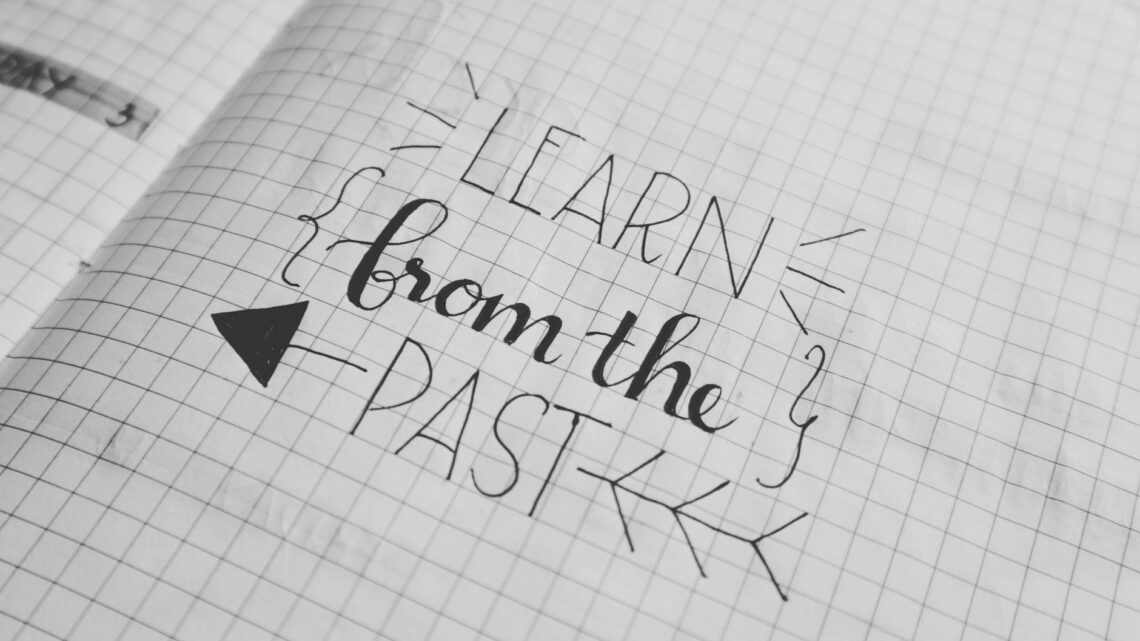 LEARN
from the
PAST
3